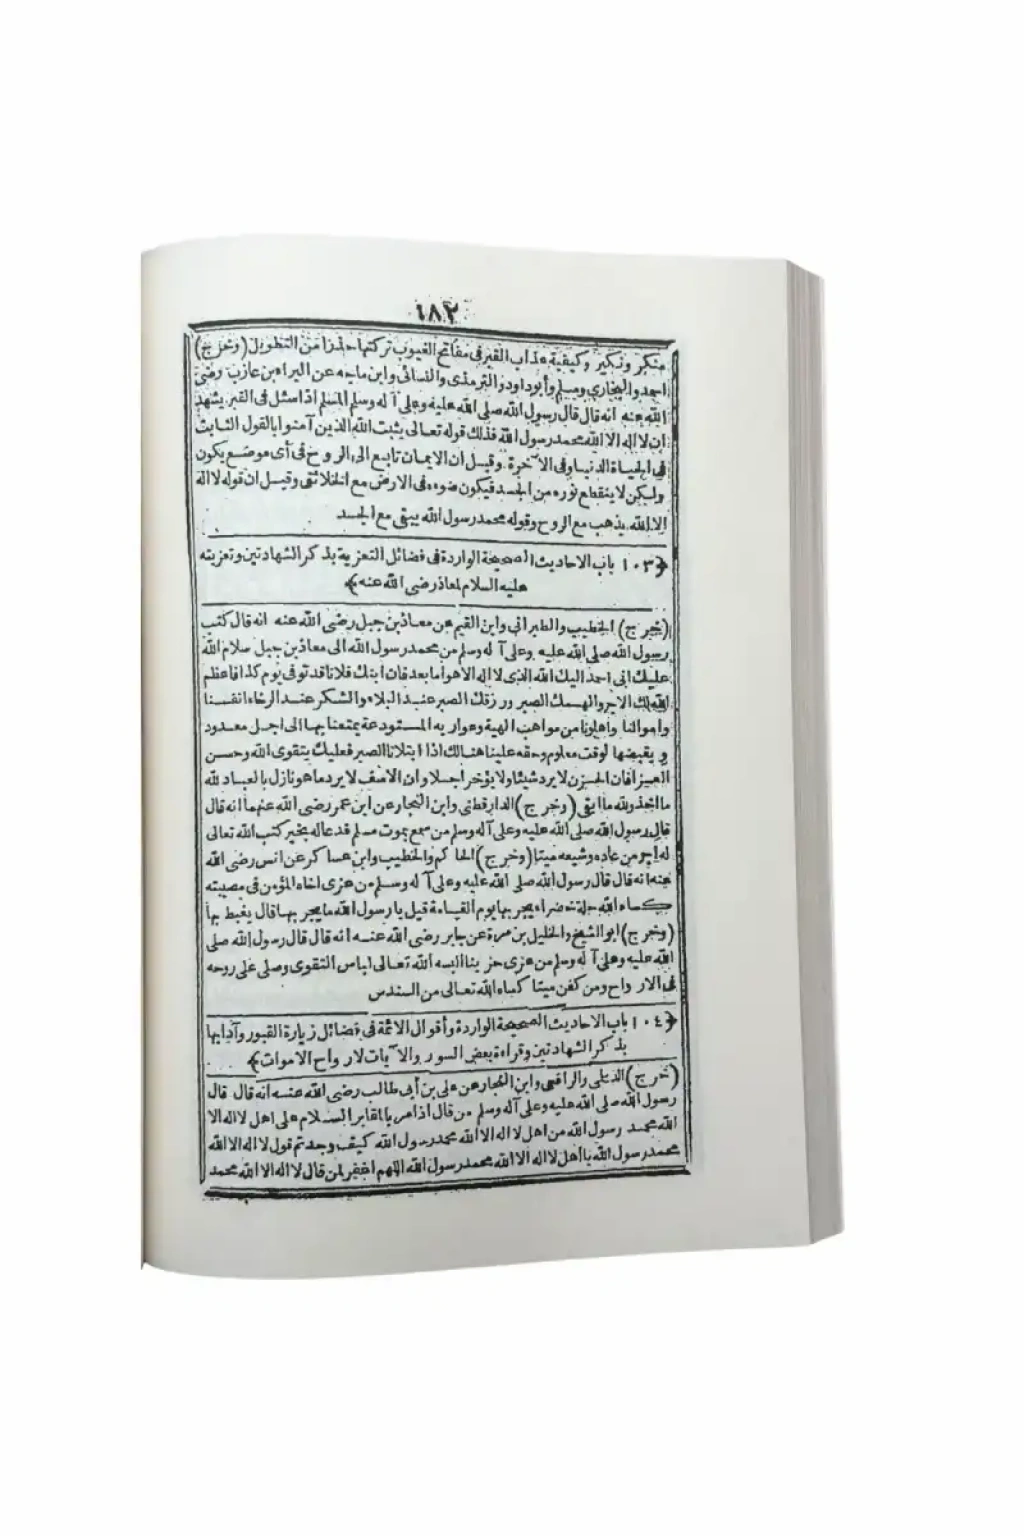 ١٨٢
منكر ونكير وكيفية عذاب القبر فى مفاتح الغيوب تركتها حذرا من التطويل (وخرج)
احمد والبخارى ومسلم وأبو داود والترمذى والنسائى وابن ماجه عن البراء بن عازب رضى
الله عنه انه قال قال رسول الله صلى الله عليه وعلى آله وسلم المسلم اذا سئل فى القبر يشهد
ان لا اله الا الله محمد رسول الله فذلك قوله تعالى يثبت الله الذين آمنوا بالقول الثابت
فى الحياة الدنيا وفى الآخرة وقيل ان الايمان تابع الى الروح فى أى موضع يكون
ولكن لا ينقطع نوره من الجسد فيكون ضوءه فى الارض مع الخلائق وقيل ان قوله لا اله
الا الله يذهب مع الروح وقوله محمد رسول الله يبقى مع الجسد
﴿١٠٣ باب الاحاديث الصحيحة الواردة فى فضائل التعزية بذكر الشهادتين وتعزيته
عليه السلام لمعاذ رضى الله عنه﴾
(خرج) الخطيب والطبرانى وابن القيم عن معاذ بن جبل رضى الله عنه انه قال كتب
رسول الله صلى الله عليه وعلى آله وسلم من محمد رسول الله الى معاذ بن جبل سلام الله
عليك انى احمد اليك الله الذى لا اله الا هو اما بعد فان ابنك فلانا قد توفى يوم كذا فاعظم
الله لك الاجر والهمك الصبر ورزقك الصبر عند البلاء والشكر عند الرخاء انفسنا
واموالنا واهلونا من مواهب الهية وعواريه المستودعة يمتعنا بها الى اجل معدود
ويقبضها لوقت معلوم وحقه علينا هنالك اذا ابتلانا الصبر فعليك بتقوى الله وحسن
العزا فان الحزن لا يرد شيئا ولا يؤخر اجلا وان الاسف لا يرد ما هو نازل بالعباد لله
ما اخذ ولله ما ابقى (وخرج) الدارقطنى وابن النجار عن ابن عمر رضى الله عنهما انه قال
قال رسول الله صلى الله عليه وعلى آله وسلم من سمع بموت مسلم فدعا له بخير كتب الله تعالى
له اجر من عاده وشيعه ميتا (وخرج) الحاكم والخطيب وابن عساكر عن انس رضى الله
عنه انه قال قال رسول الله صلى الله عليه وعلى آله وسلم من عزى اخاه المؤمن فى مصيبته
كساه الله حلة خضراء يجبر بها يوم القيامة قيل يا رسول الله ما يجبر بها قال يغبط بها
(وخرج) ابو الشيخ والخليل بن مرة عن جابر رضى الله عنه انه قال قال رسول الله صلى
الله عليه وعلى آله وسلم من عزى حزينا البسه الله تعالى لباس التقوى وصلى على روحه
فى الارواح ومن كفن ميتا كساه الله تعالى من السندس
﴿١٠٤ باب الاحاديث الصحيحة الواردة وأقوال الائمة فى فضائل زيارة القبور وآدابها
بذكر الشهادتين وقراءة بعض السور والآيات لارواح الاموات﴾
(خرج) الديلى والرافعى وابن النجار عن على بن أبى طالب رضى الله عنه انه قال قال
رسول الله صلى الله عليه وعلى آله وسلم من قال اذا مر بالمقابر السلام على اهل لا اله الا
الله محمد رسول الله من اهل لا اله الا الله محمد رسول الله كيف وجدتم قول لا اله الا الله
محمد رسول الله يا اهل لا اله الا الله محمد رسول الله اللهم اغفر لمن قال لا اله الا الله محمد